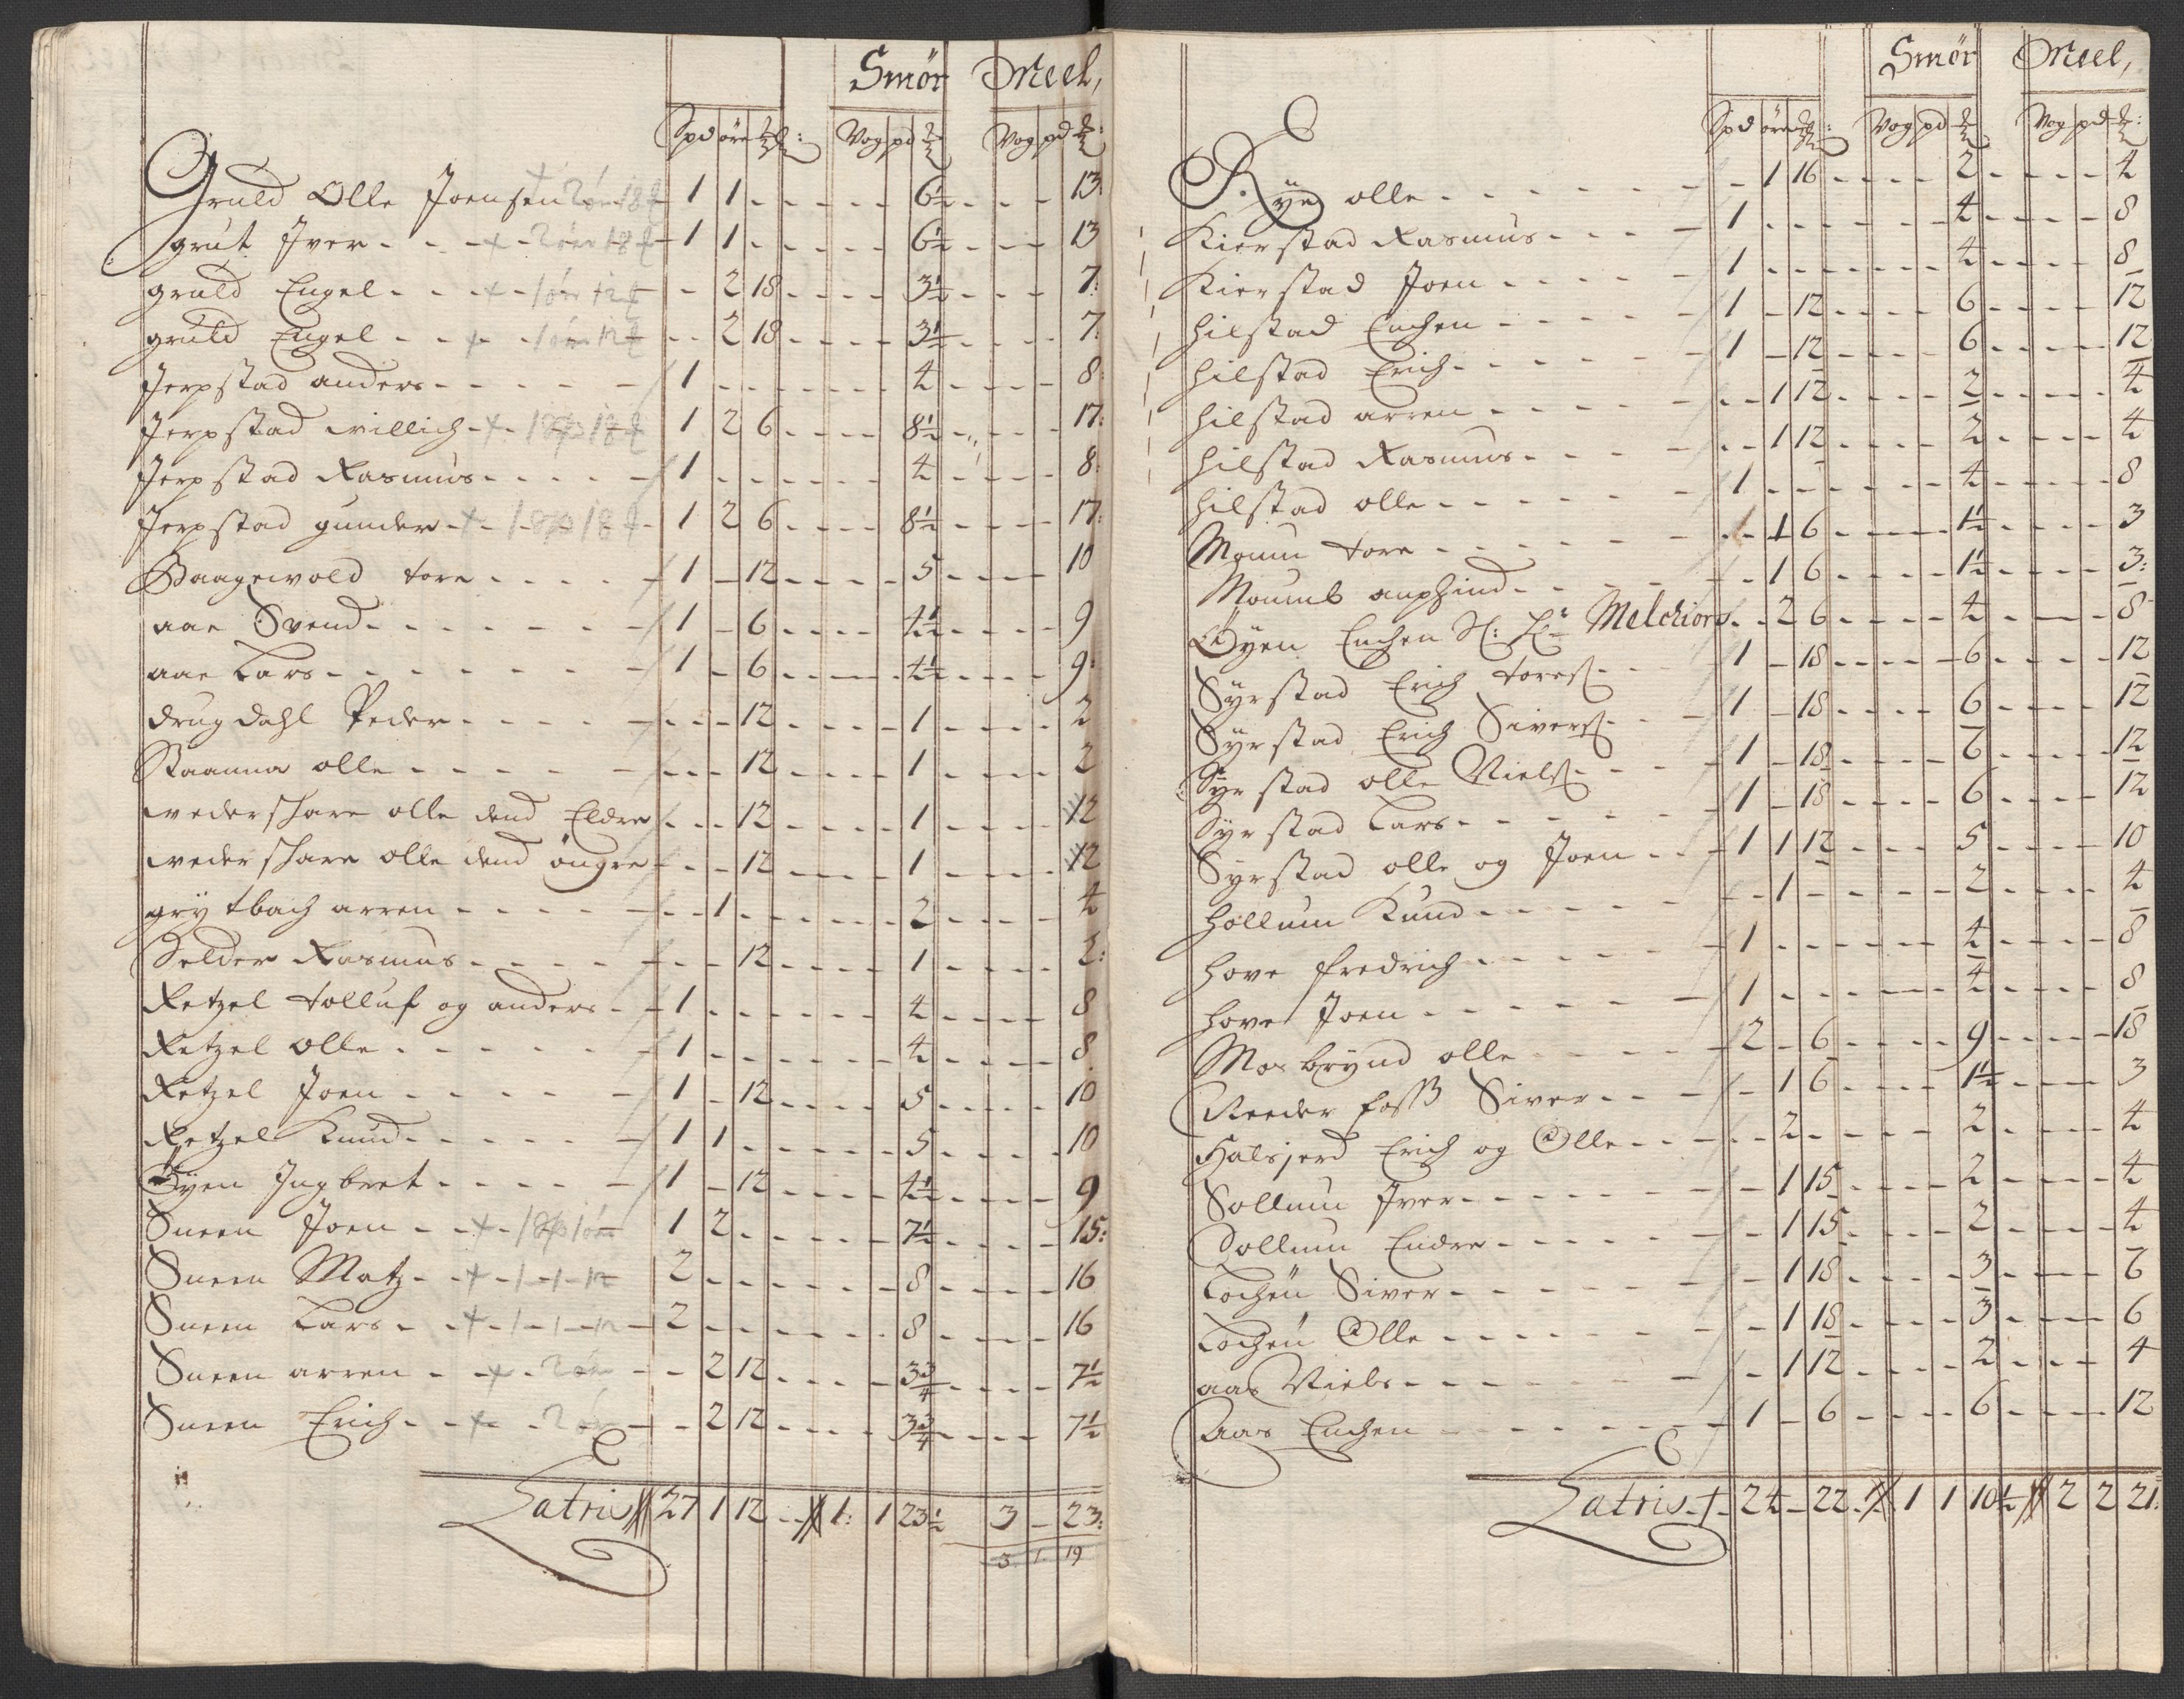 Smør Meel,
Spd øre Vog pd Vog pd
Gruld Olle Joensen 1 1 6½ 13
grut Iver 1 1 6½ 13
gruld Engel 2 18 3½ 7
gruld Engel 2 18 3½ 7
Jerpstad anders 1 4 8
Jerpstad willich 1 2 6 8½ 17
Jerpstad Rasmus 1 4 8
Jerpstad gunder 1 2 6 8½ 17
Baagewold tore 1 - 12 5 10
aae Svend 1 - 6 4½ 9
aae Lars 1 - 6 4½ 9
drugdahl Peder 12 1 2
Staanna olle 12 1 2
wedershare olle dend Eldre 12 1 2
wedershare olle dend öngre 12 1 2
grytbach arren 1 2 4
Selder Rasmus 12 1 2
Retzel tolluf og anders 1 4 8
Retzel olle 1 4 8
Retzel Joen 1 - 12 5 10
Retzel Knud 1 1 5 10
Øyen Ingbret 1 - 12 4½ 9
Sneen Joen 1 2 7½ 15
Sneen Matz 2 8 16
Sneen Lars 2 8 16
Sneen arren 2 12 3¾ 7½
Sneen Erich 2 12 3¾ 7½
Latris 27 1 12 1 1 23½ 3 - 23
3 1 19
Smør Meel,
Spd øre Vog pd Vog pd
Rye olle 1 16 2 4
Kierstad Rasmus 1 4 8
Kierstad Joen 1 4 8
hilstad Enchen 1 - 12 6 12
hilstad Erich 1 - 12 6 12
hilstad arren 1 12 2 4
hilstad Rasmus 1 12 2 4
hilstad olle 1 4 8
Moum tore 1 6 1½ 3
Moumb anphind 1 6 1½ 3
Øyen Enchen Sl: Hr Melchiors 2 6 4 8
Syrstad Erich tores 1 - 18 6 12
Syrstad Erich Sivers 1 - 18 6 12
Syrstad olle Niels 1 - 18 6 12
Syrstad Lars 1 - 18 6 12
Syrstad olle og Joen 1 1 12 5 10
hollum Knud 1 2 4
hove fredrich 1 4 8
hove Joen 1 4 8
Mosbrynd olle 2 - 6 9 18
Reeder foss Siver 1 6 1½ 3
Halsjerd Erich og Olle 2 2 4
Sollum Iver 1 15 2 4
Sollum Endre 1 15 2 4
Lochen Siver 1 18 3 6
Lochen Olle 1 18 3 6
aas Niels 1 12 2 4
Aas Enchen 1 - 6 6 12
Latris 24 - 22 1 1 10½ 2 2 21